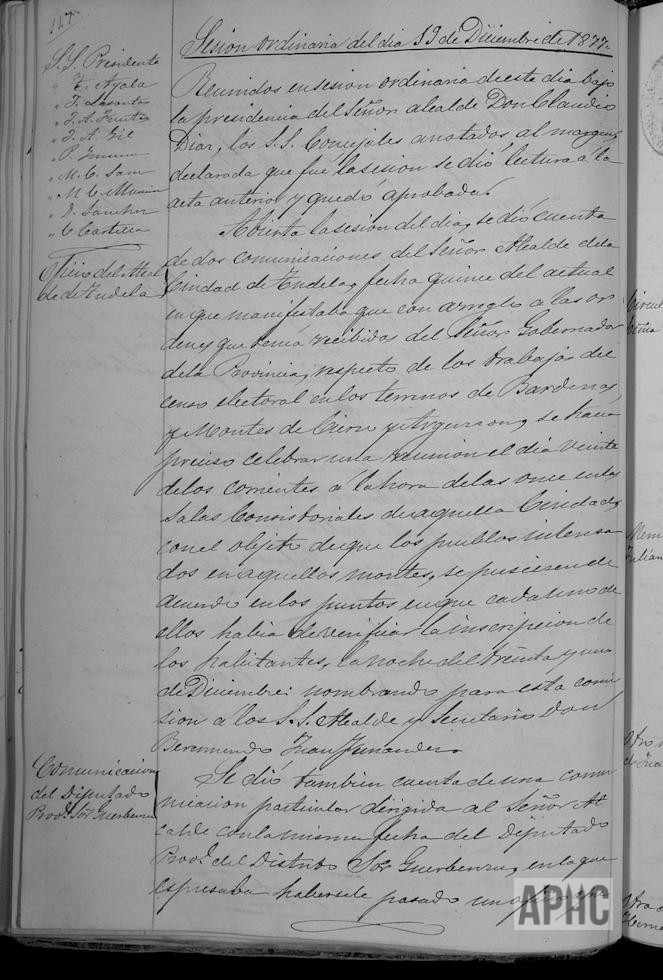 147.
Sesion ordinaria del dia 19 de Diciembre de 1877.
S.S. Presidente
" Z. Ayala
" F. Lasanta
" J. A. Fuertes
" J. A. Gil
" P.
" M. C. Sanz
" M. C.
" D. Sanchez
" C. Castilla
Reunidos en sesion ordinaria de este dia bajo
la presidencia del Señor alcalde Don Claudio
Diaz, los S.S. Concejales anotados al margen,
declarada que fué la sesion se dió lectura á la
acta anterior y quedó aprobada.
Oficio del Alcal
de de Tudela
Abierta la sesion del dia, se dió cuenta
de dos comunicaciones del Señor Alcalde dela
Ciudad de Tudela, fecha quince del actual
en que manifestaba que con arreglo a las or
denes que tenia recibidas del Señor Gobernador
dela Provincia, respecto de los trabajos del
censo electoral en los terrenos de Bardenas,
y Montes de Cierzo y Argenzon, se hacia
preciso celebrar una reunion el dia veinte
delos corrientes a la hora delas once en las
Salas Consistoriales de aquella Ciudad,
con el objeto de que los pueblos interesa
dos en aquellos montes, se pusiesen de
acuerdo en los puntos en que cada uno de
ellos habia de verificar la inscripcion de
los habitantes, la noche del treinta y uno
de Diciembre: nombrando para esta comi
sion a los S.S. Alcalde y Secretario Don
Beremundo Juan Fernandez.
Comunicacion
del Diputado
Prov.l Sor Guerbenzu
Se dió tambien cuenta de una comu
nicacion particular dirigida al Señor Al
calde con la misma fecha del Diputado
Prov.l del Distrito Sor Guerbenzu, en la que
espresaba habersele pasado un oficio
APHC